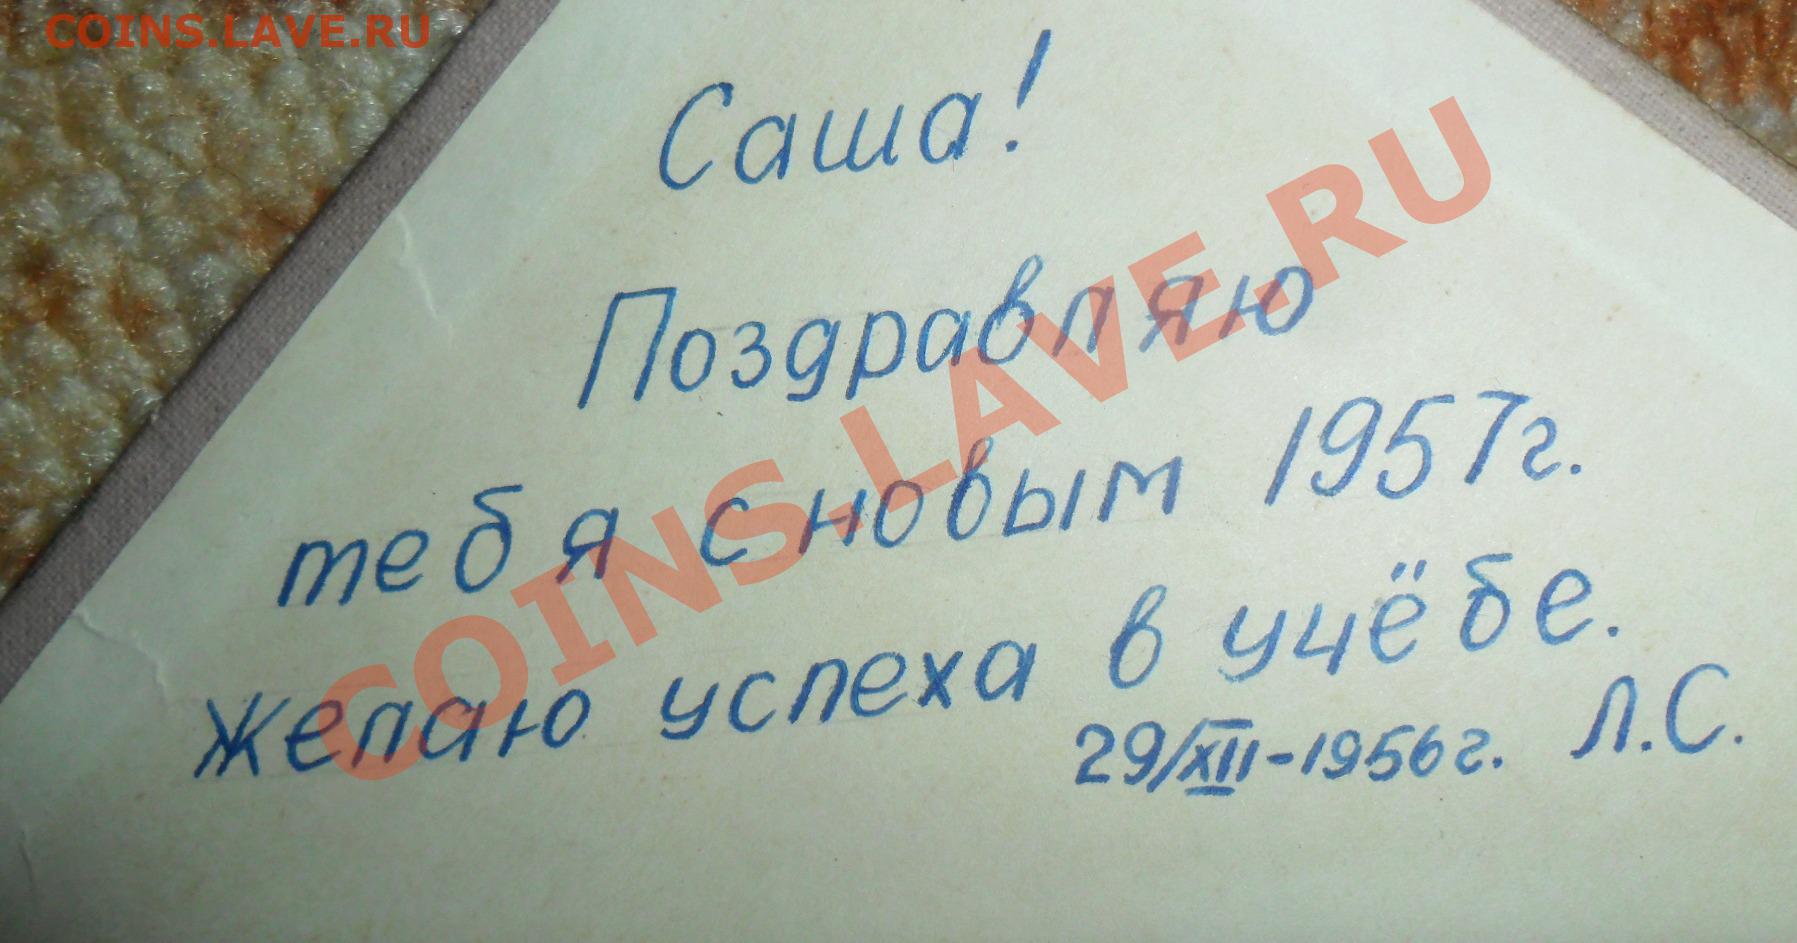 COINS.LAVE.RU
Саша!
Поздравляю
тебя с новым 1957г.
Желаю успеха в учёбе.
29/XII-1956г. Л.С.
COINS.LAVE.RU